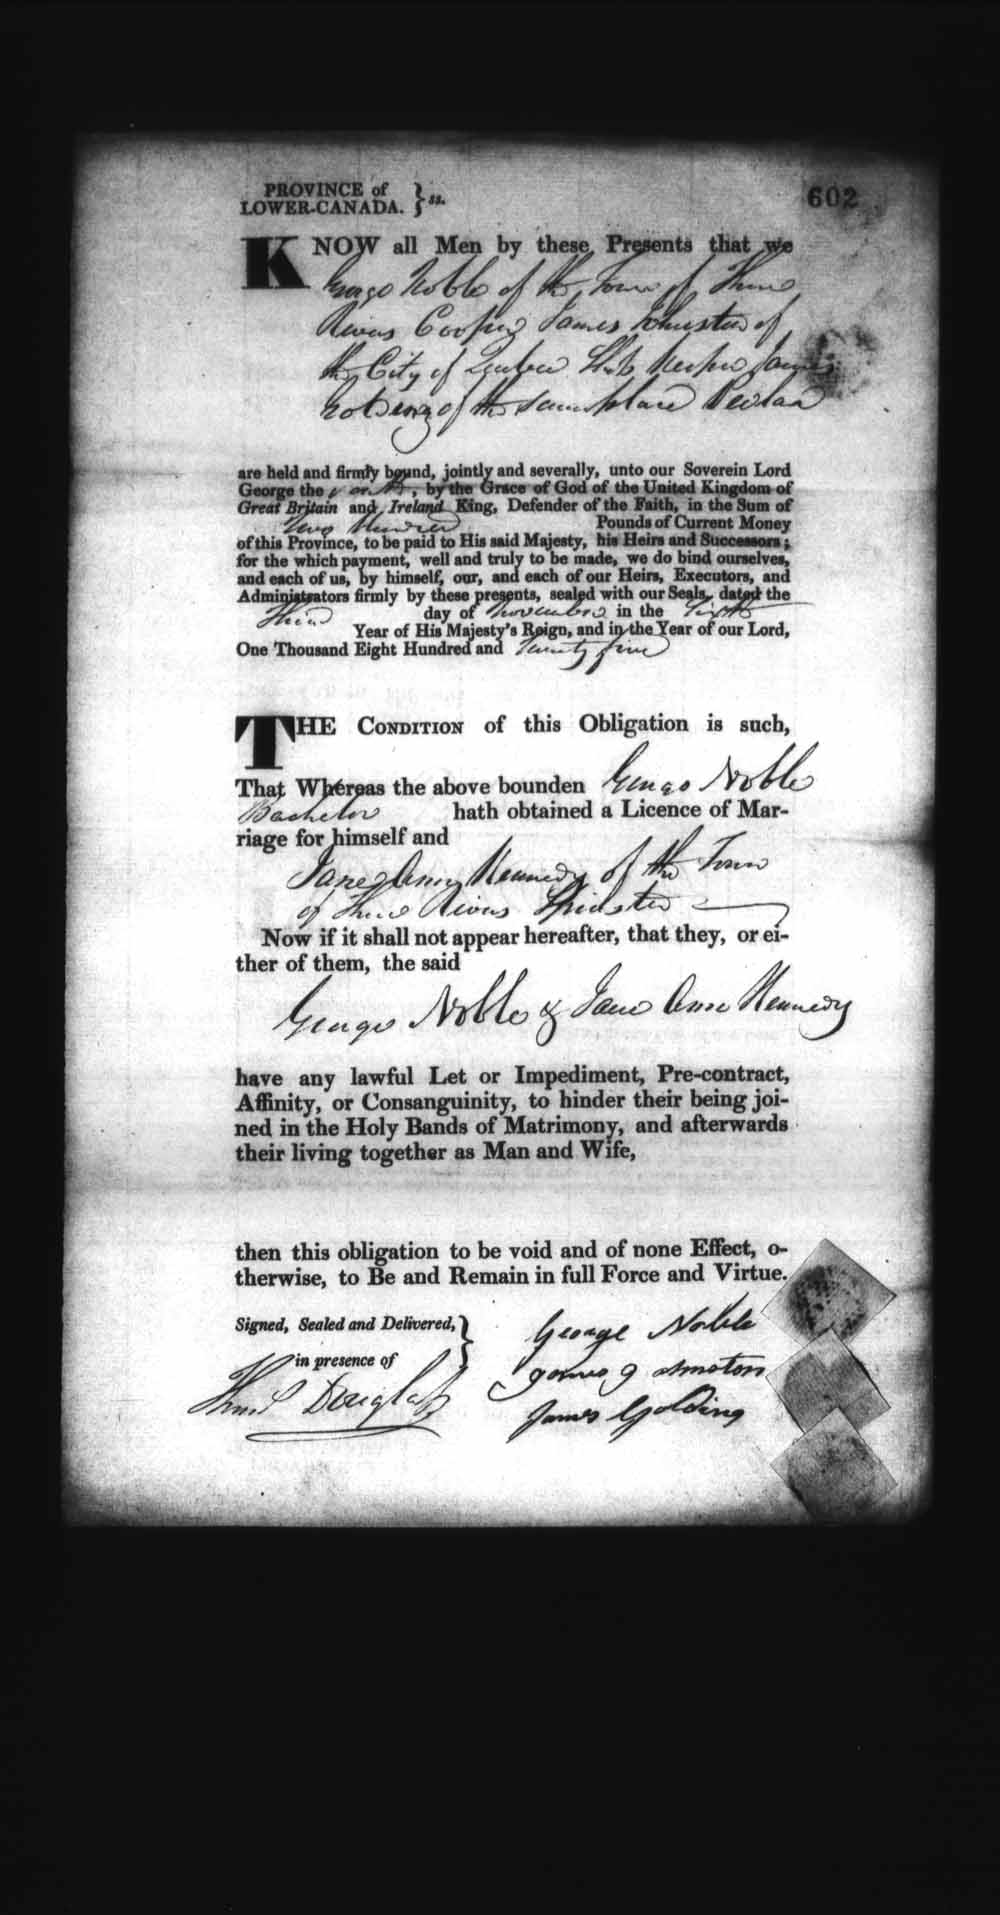 PROVINCE of
LOWER-CANADA. } ss.
602
KNOW all Men by these Presents that we
George Noble of the Town of Three
Rivers Cooper James Johnston of
the City of Quebec Keeper James
Golding of the same place
are held and firmly bound, jointly and severally, unto our Soverein Lord
George the Fourth, by the Grace of God of the United Kingdom of
Great Britain and Ireland King, Defender of the Faith, in the Sum of
Two Hundred Pounds of Current Money
of this Province, to be paid to His said Majesty, his Heirs and Successors;
for the which payment, well and truly to be made, we do bind ourselves,
and each of us, by himself, our, and each of our Heirs, Executors, and
Administrators firmly by these presents, sealed with our Seals, dated the
Third day of November in the Sixth
Year of His Majesty's Reign, and in the Year of our Lord,
One Thousand Eight Hundred and Twenty five
THE CONDITION of this Obligation is such,
That Whereas the above bounden George Noble
Bachelor hath obtained a Licence of Mar-
riage for himself and
Jane Ann Kennedy of the Town
of Three Rivers Spinster
Now if it shall not appear hereafter, that they, or ei-
ther of them, the said
George Noble & Jane Ann Kennedy
have any lawful Let or Impediment, Pre-contract,
Affinity, or Consanguinity, to hinder their being joi-
ned in the Holy Bands of Matrimony, and afterwards
their living together as Man and Wife,
then this obligation to be void and of none Effect, o-
therwise, to Be and Remain in full Force and Virtue.
Signed, Sealed and Delivered, }
in presence of
George Noble
James Johnston
James Golding
Douglass